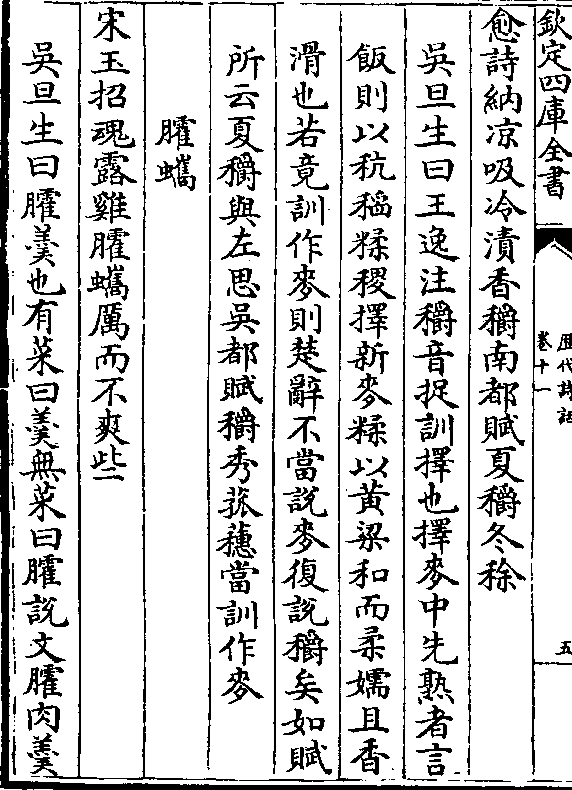 欽定四庫全書
歴代詩話
卷十一
五
愈詩納凉吸冷漬香穱南都賦夏穱冬稌
吳旦生曰王逸注穱音捉訓擇也擇麥中先熟者言
飯則以秔稻糅稷擇新麥糅以黄粱和而柔嬬且香
滑也若竟訓作麥則楚辭不當說麥復說穱矣如賦
所云夏穱與左思吳都賦穱秀菰穗當訓作麥
臛蠵
宋玉招魂露雞臛蠵厲而不爽些
吳旦生曰臛羮也有菜曰羮無菜曰臛說文臛肉羮